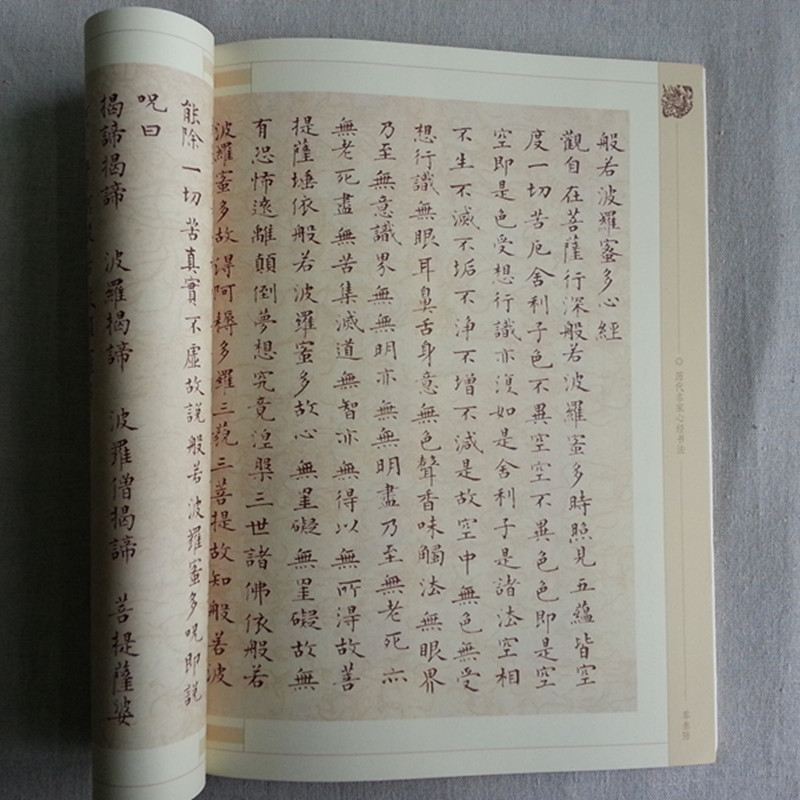 般若波羅蜜多心經
觀自在菩薩行深般若波羅蜜多時照見五蘊皆空
度一切苦厄舍利子色不異空空不異色色即是空
空即是色受想行識亦復如是舍利子是諸法空相
不生不滅不垢不淨不增不減是故空中無色無受
想行識無眼耳鼻舌身意無色聲香味觸法無眼界
乃至無意識界無無明亦無無明盡乃至無老死亦
無老死盡無苦集滅道無智亦無得以無所得故菩
提薩埵依般若波羅蜜多故心無罣礙無罣礙故無
有恐怖遠離顛倒夢想究竟涅槃三世諸佛依般若
波羅蜜多故得阿耨多羅三藐三菩提故知般若波
能除一切苦真實不虛故說般若波羅蜜多呪即說
呪曰
揭諦揭諦 波羅揭諦 波羅僧揭諦 菩提薩婆
历代名家心经书法